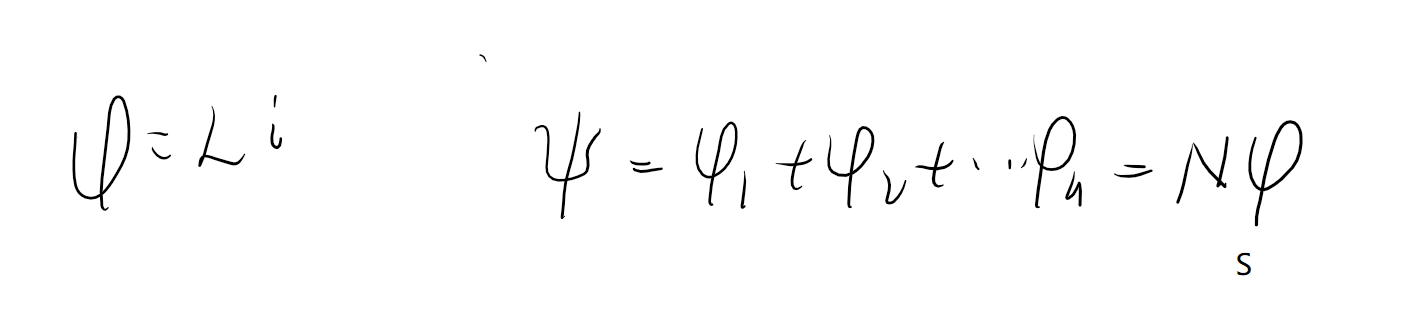 φ = L i ψ = φ₁ + φ₂ + ... φₙ = Nφ
S